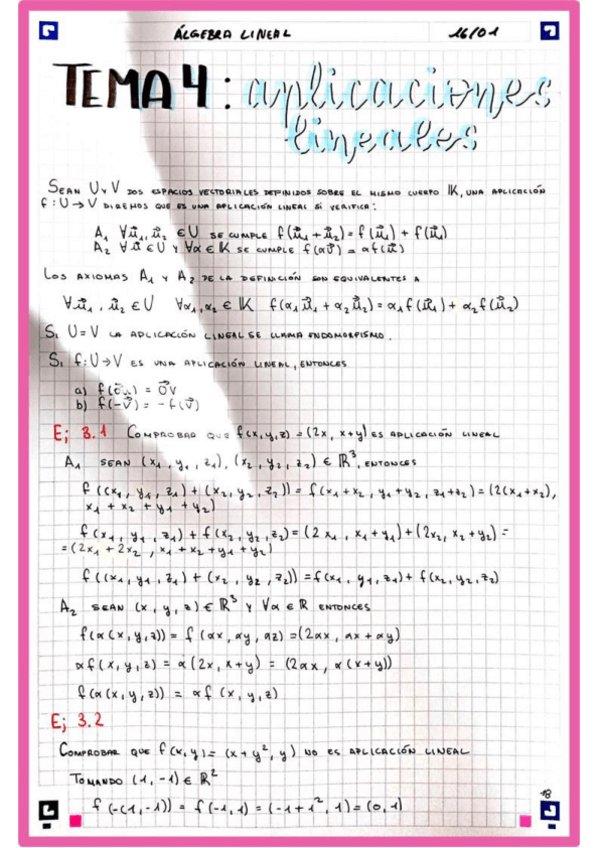 ÁLGEBRA LINEAL 16/01
TEMA 4: aplicaciones
lineales
SEAN U Y V DOS ESPACIOS VECTORIALES DEFINIDOS SOBRE EL MISMO CUERPO IK, UNA APLICACIÓN
f: U → V DIREMOS QUE ES UNA APLICACIÓN LINEAL SI VERIFICA:
A₁ ∀u⃗₁, u⃗₂ ∈ U SE CUMPLE f(u⃗₁ + u⃗₂) = f(u⃗₁) + f(u⃗₂)
A₂ ∀u⃗ ∈ U Y ∀α ∈ IK SE CUMPLE f(αv⃗) = αf(u⃗)
LOS AXIOMAS A₁ Y A₂ DE LA DEFINICIÓN SON EQUIVALENTES A
∀u⃗₁, u⃗₂ ∈ U ∀α₁, α₂ ∈ IK f(α₁u⃗₁ + α₂u⃗₂) = α₁f(u⃗₁) + α₂f(u⃗₂)
SI U=V LA APLICACIÓN LINEAL SE LLAMA ENDOMORFISMO.
SI f: U → V ES UNA APLICACIÓN LINEAL, ENTONCES
a) f(o⃗u) = o⃗v
b) f(-v⃗) = -f(v⃗)
Ej 3.1 COMPROBAR QUE f(x,y,z) = (2x, x+y) ES APLICACIÓN LINEAL
A₁ SEAN (x₁, y₁, z₁), (x₂, y₂, z₂) ∈ ℝ³, ENTONCES
f((x₁, y₁, z₁) + (x₂, y₂, z₂)) = f(x₁+x₂, y₁+y₂, z₁+z₂) = (2(x₁+x₂),
x₁ + x₂ + y₁ + y₂)
f(x₁, y₁, z₁) + f(x₂, y₂, z₂) = (2x₁, x₁+y₁) + (2x₂, x₂+y₂) =
= (2x₁ + 2x₂, x₁ + x₂ + y₁ + y₂)
f((x₁, y₁, z₁) + (x₂, y₂, z₂)) = f(x₁, y₁, z₁) + f(x₂, y₂, z₂)
A₂ SEAN (x, y, z) ∈ ℝ³ Y ∀α ∈ ℝ ENTONCES
f(α(x, y, z)) = f(αx, αy, αz) = (2αx, αx + αy)
αf(x, y, z) = α(2x, x+y) = (2αx, α(x+y))
f(α(x, y, z)) = αf(x, y, z)
Ej 3.2
COMPROBAR QUE f(x,y) = (x+y², y) NO ES APLICACIÓN LINEAL
TOMANDO (1, -1) ∈ ℝ²
f(-(1, -1)) = f(-1, 1) = (-1+1², 1) = (0, 1)
18